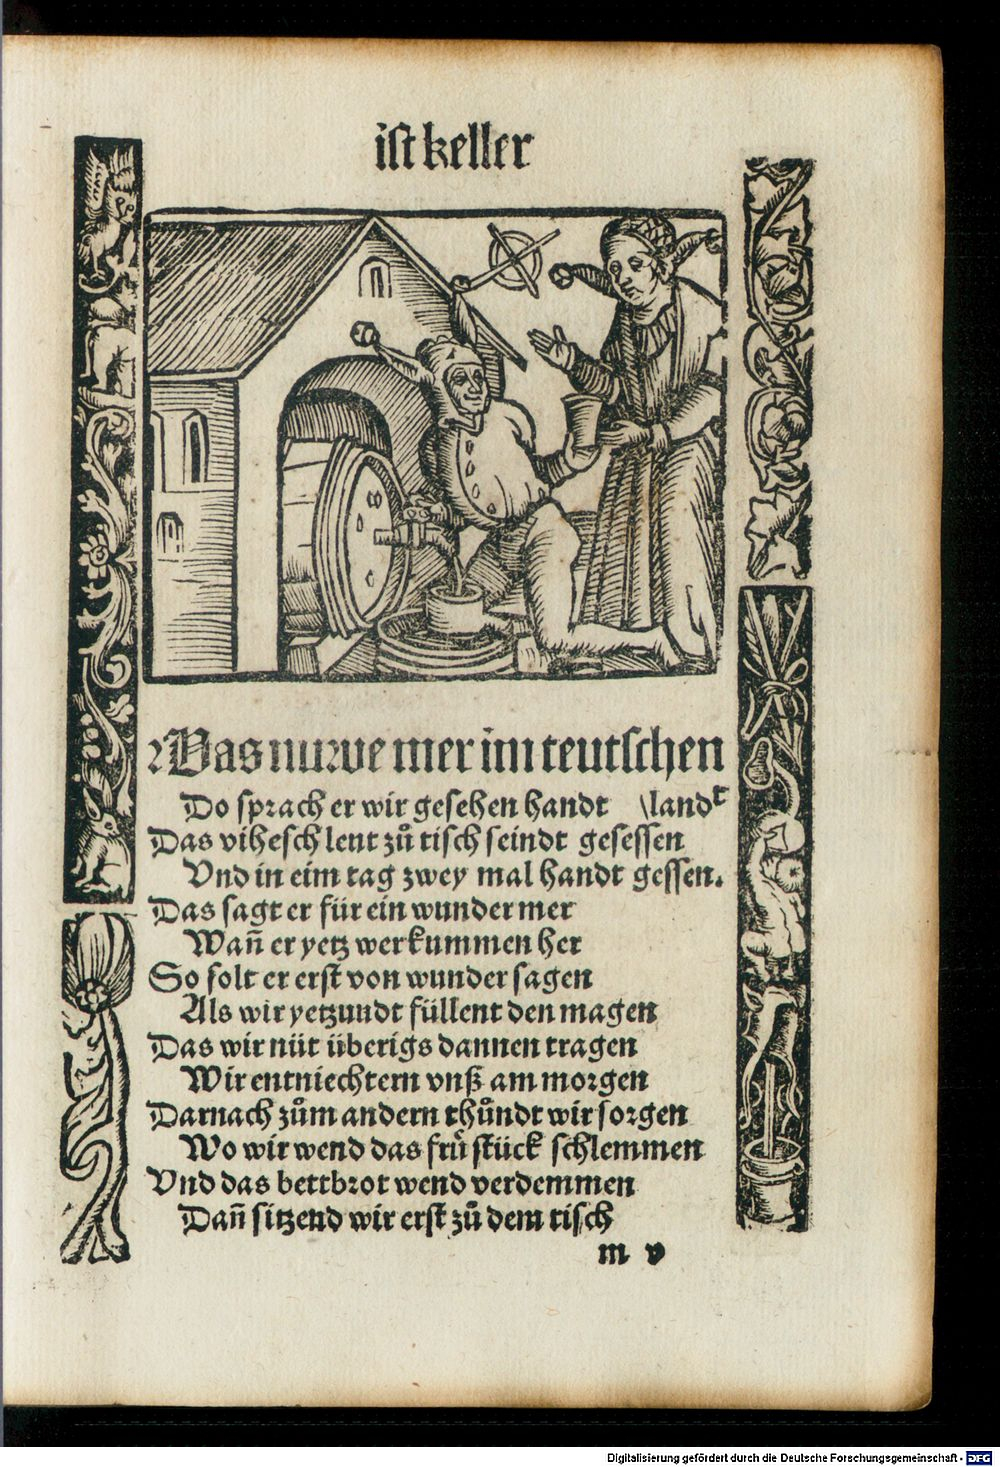 ist keller
Was nuwe mer im teutschen
Do sprach er wir gesehen handt \landt
Das vihesch lent zů tisch seindt gesessen
Vnd in eim tag zwey mal handt gessen.
Das sagt er für ein wunder mer
Wañ er yetz wer kummen her
So solt er erst von wunder sagen
Als wir yetzundt füllent den magen
Das wir nüt überigs dannen tragen
Wir entniechtern vnß am morgen
Darnach zům andern thůndt wir sorgen
Wo wir wend das frů stück schlemmen
Vnd das bettbrot wend verdemmen
Dañ sitzend wir erst zů dem tisch
m v
Digitalisierung gefördert durch die Deutsche Forschungsgemeinschaft - DFG